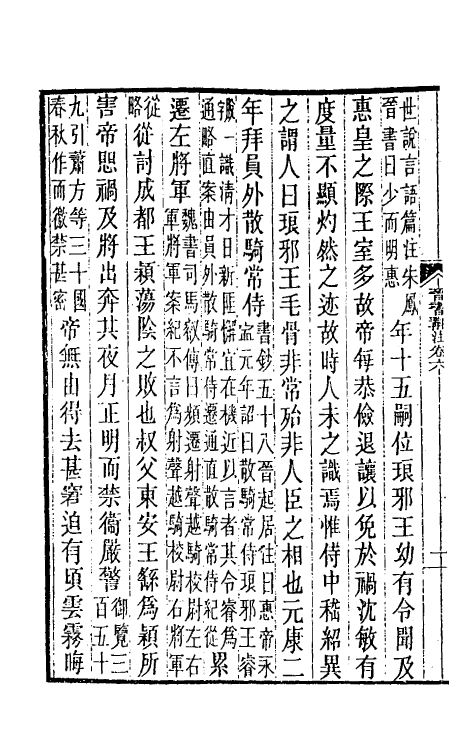 晉書斠注卷六
世說言語篇注朱鳳
晉書曰少而明惠
年十五嗣位琅邪王幼有令聞及
惠皇之際王室多故帝每恭儉退讓以免於禍沈敏有
度量不顯灼然之迹故時人未之識焉惟侍中嵇紹異
之謂人曰琅邪王毛骨非常殆非人臣之相也元康二
年拜員外散騎常侍
書鈔五十八晉起居注曰惠帝永
寍元年詔曰散騎常侍琅邪王睿
一識清才日新匪懈宜在機近以言者其令睿為
通略直案由員外散騎常侍遷通直散騎常侍紀從
累
遷左將軍
魏書司馬叡傳曰頻遷射聲越騎校尉左右
軍將軍案紀不言為射聲越騎校尉右將軍
從
略
從討成都王穎蕩陰之敗也叔父東安王繇為穎所
害帝愳禍及將出奔其夜月正明而禁衞嚴警
御覽三
百五十
九引蕭方等三十國
春秋作而徼禁甚密
帝無由得去甚窘迫有頃雲霧晦